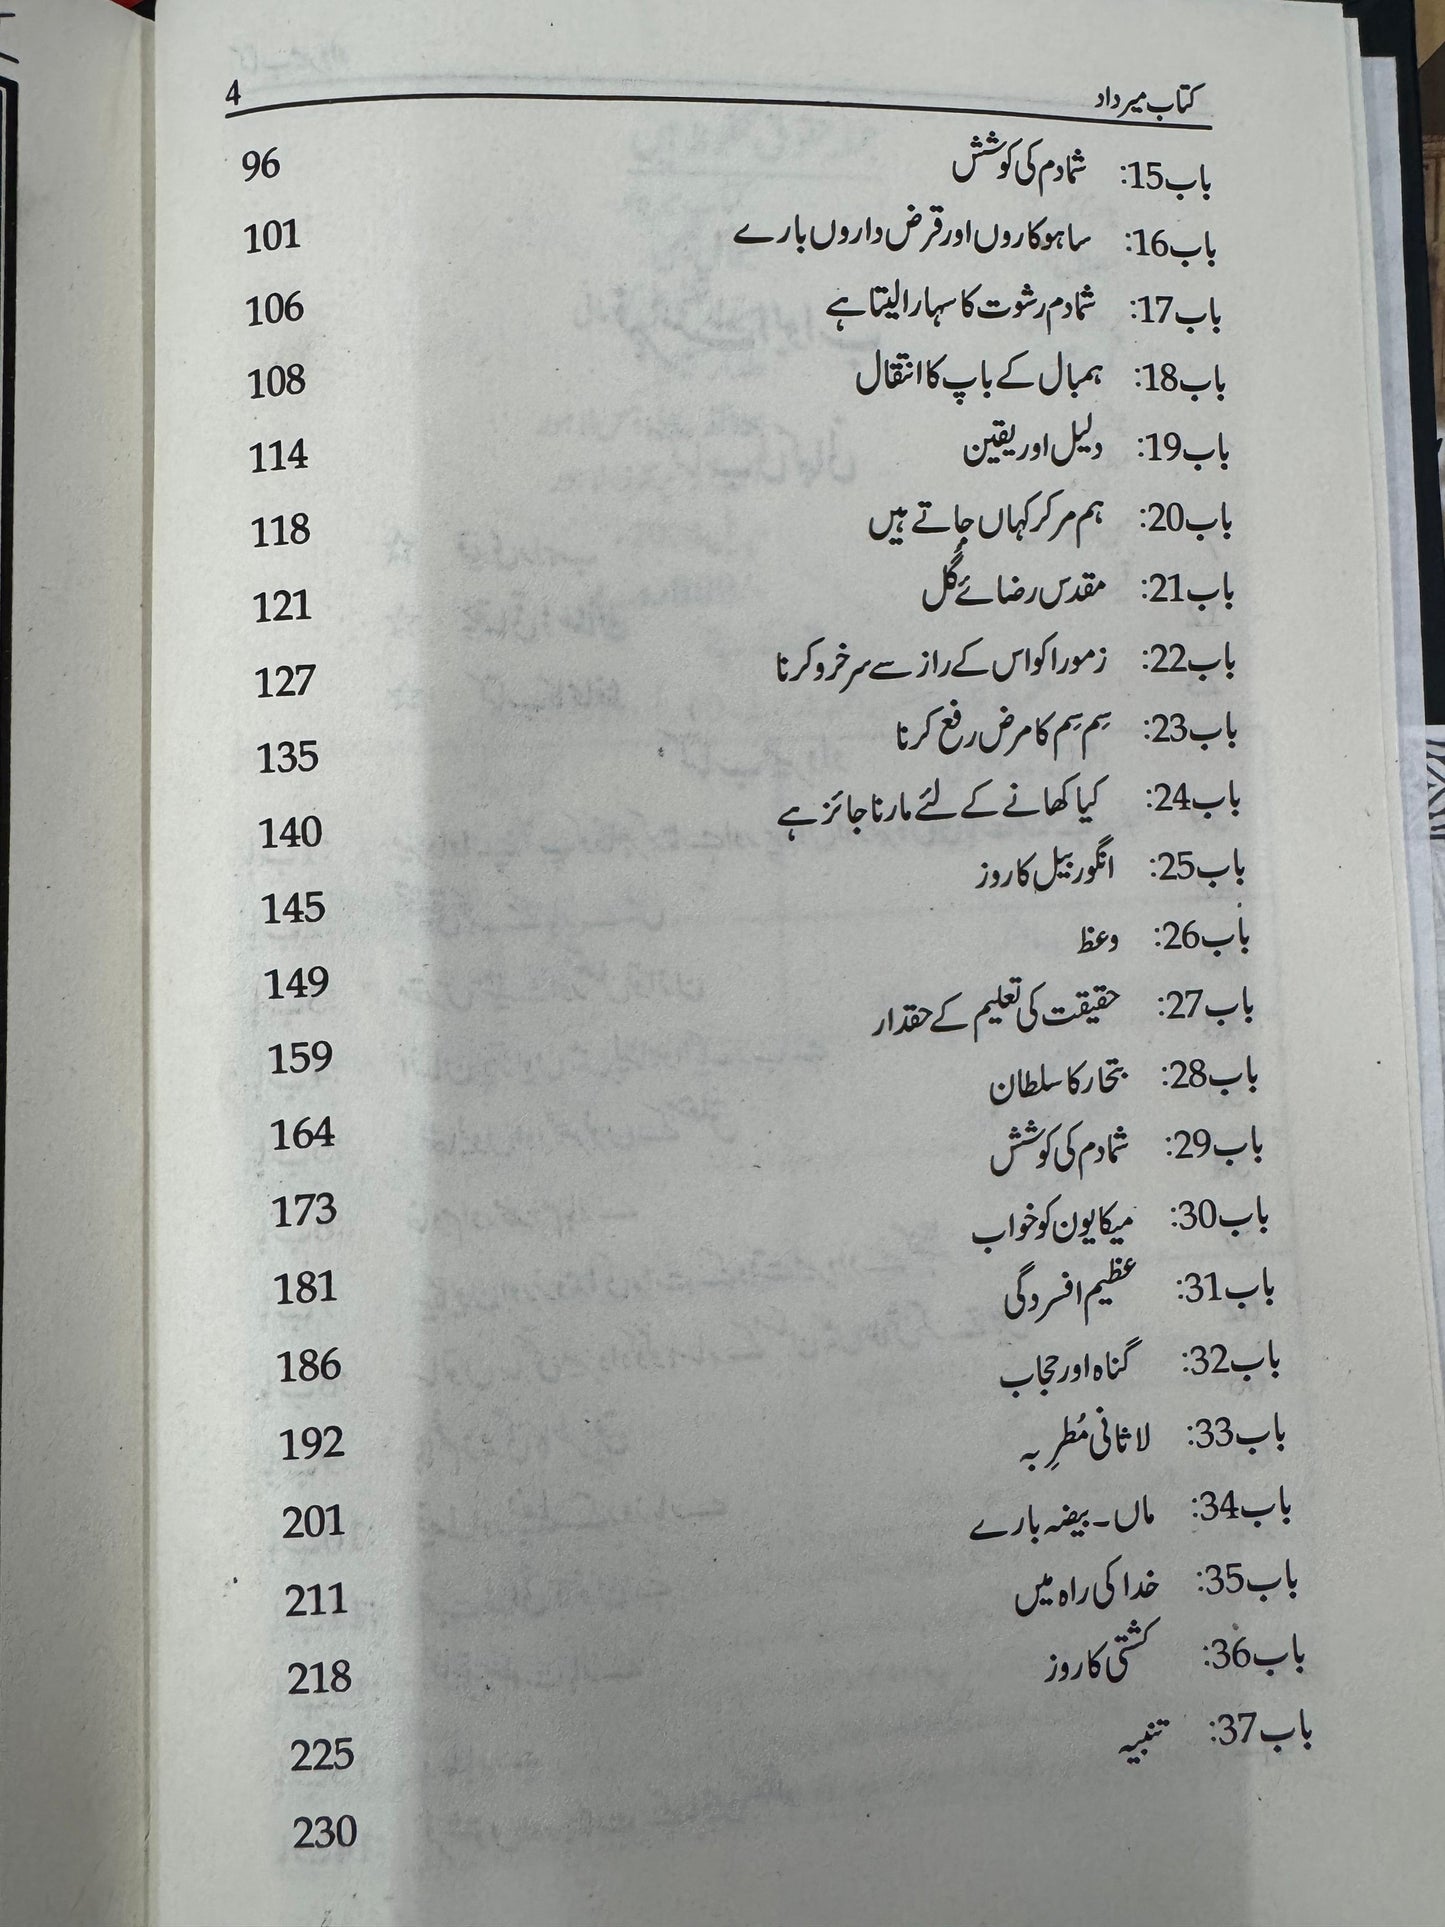 کتاب میرداد 4
باب15: شمادم کی کوشش 96
باب16: ساہوکاروں اور قرض داروں بارے 101
باب17: شمادم رشوت کا سہارا لیتا ہے 106
باب18: ہمبال کے باپ کا انتقال 108
باب19: دلیل اور یقین 114
باب20: ہم مر کر کہاں جاتے ہیں 118
باب21: مقدس رضائے کُل 121
باب22: زمورا کو اس کے راز سے سرخرو کرنا 127
باب23: سِم سِم کا مرض رفع کرنا 135
باب24: کیا کھانے کے لئے مارنا جائز ہے 140
باب25: انگور بیل کا روز 145
باب26: وعظ 149
باب27: حقیقت کی تعلیم کے حقدار 159
باب28: بتحار کا سلطان 164
باب29: شمادم کی کوشش 173
باب30: میکایون کو خواب 181
باب31: عظیم افسردگی 186
باب32: گناہ اور حجاب 192
باب33: لاثانی مُطرِبہ 201
باب34: ماں۔بیضہ بارے 211
باب35: خدا کی راہ میں 218
باب36: کشتی کا روز 225
باب37: تنبیہ 230